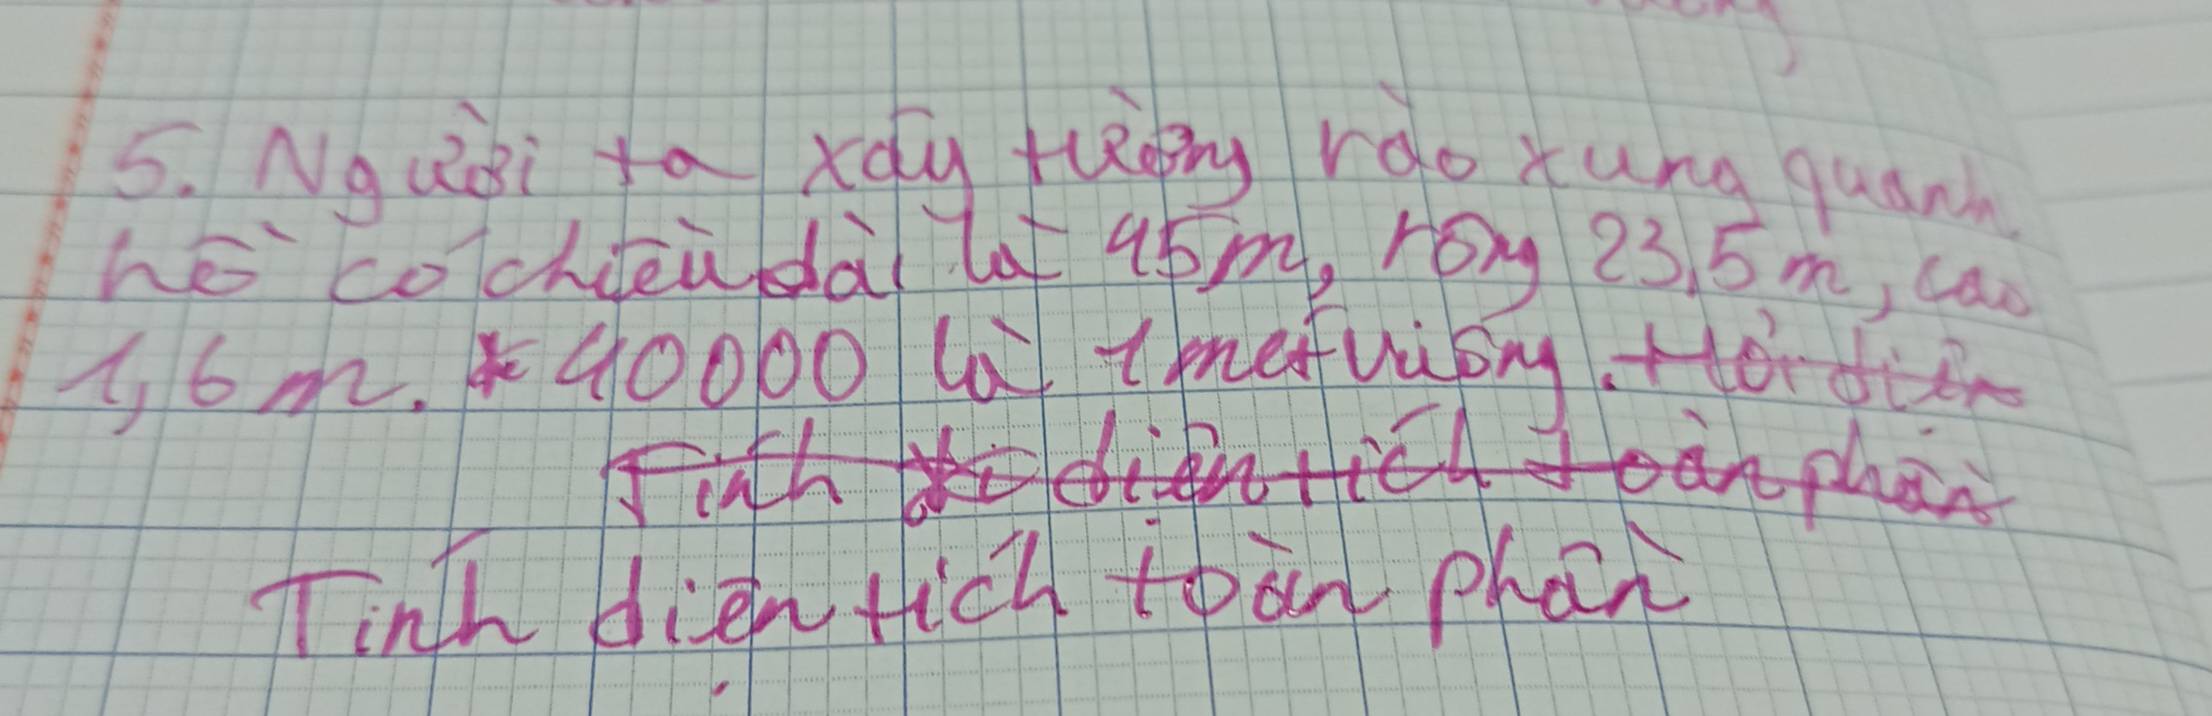 5. Người ta xây tường rào xung quanh
hồ có chiều dài là 45m, rộng 23,5m, cao
1,6m. * 40000 là 1 mét vuông. Hỏi diện
Tính diện tích toàn phần
Tính diện tích toàn phần